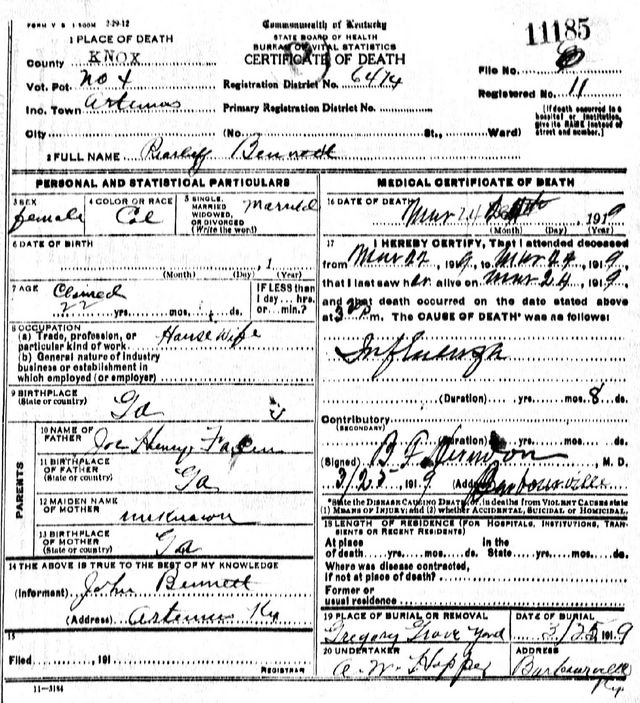 FORM V. S. 1 500M 2-29-12
Commonwealth of Kentucky
STATE BOARD OF HEALTH
BUREAU OF VITAL STATISTICS
CERTIFICATE OF DEATH
11185
1 PLACE OF DEATH
County KNOX
Vot. Pct. No 4
Registration District No. 6474
File No.
Inc. Town Artemus
Primary Registration District No.
Registered No. 11
City (No. St., Ward)
[If death occurred in a hospital or institution, give its NAME instead of street and number.]
2 FULL NAME Bennett
PERSONAL AND STATISTICAL PARTICULARS
3 SEX female
4 COLOR OR RACE Col
5 SINGLE, MARRIED WIDOWED, OR DIVORCED (Write the word) Married
6 DATE OF BIRTH
(Month) (Day) (Year) , 1
7 AGE Claimed
22 yrs. mos. ds.
IF LESS than 1 day... hrs. or... min.?
8 OCCUPATION
(a) Trade, profession, or particular kind of work House Wife
(b) General nature of industry business or establishment in which employed (or employer)
9 BIRTHPLACE (State or country) Ga
PARENTS
10 NAME OF FATHER Joe Henry
11 BIRTHPLACE OF FATHER (State or country) Ga
12 MAIDEN NAME OF MOTHER unknown
13 BIRTHPLACE OF MOTHER (State or country) Ga
14 THE ABOVE IS TRUE TO THE BEST OF MY KNOWLEDGE
(Informant) John Bennett
(Address) Artemus Ky
15
Filed , 191
REGISTRAR
11-3184
MEDICAL CERTIFICATE OF DEATH
16 DATE OF DEATH Mar 24 1919
(Month) (Day) (Year)
17 I HEREBY CERTIFY, That I attended deceased
from Mar 22, 1919, to Mar 24, 1919,
that I last saw her alive on Mar 24, 1919,
and that death occurred on the date stated above
at 3 P m. The CAUSE OF DEATH* was as follows:
Influenza
(Duration) yrs. mos. 8 ds.
Contributory (SECONDARY)
(Duration) yrs. mos. ds.
(Signed) B F Herndon, M. D.
3/25, 1919 (Address) Barbourville
*State the DISEASE CAUSING DEATH, or, in deaths from VIOLENT CAUSES state
(1) MEANS OF INJURY; and (2) whether ACCIDENTAL, SUICIDAL or HOMICIDAL.
18 LENGTH OF RESIDENCE (FOR HOSPITALS, INSTITUTIONS, TRANSIENTS OR RECENT RESIDENTS)
At place of death yrs. mos. ds. In the State yrs. mos. ds.
Where was disease contracted,
if not at place of death?
Former or
usual residence
19 PLACE OF BURIAL OR REMOVAL Gregory Grave Yard
DATE OF BURIAL 3/25, 1919
20 UNDERTAKER A. W. Hopper
ADDRESS Barbourville Ky